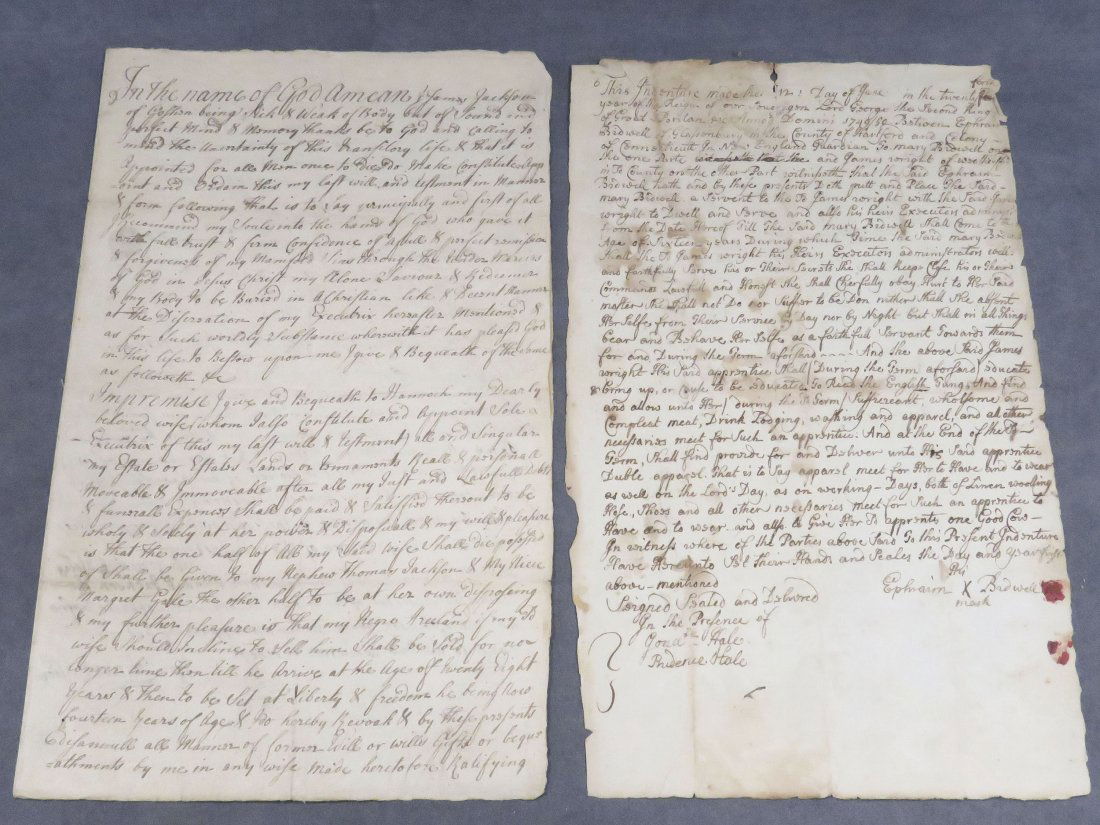 In the name of God Amean I James Jackson
of Goshen being Sick & Weak of Body but of Sound and
perfect Mind & Memory thanks be to God and Calling to
mind the Uncertainty of this transitory life & that it is
Appointed for all Men once to Die do Make Constitute App
oint and Ordain this my last will and testment in Manner
& form following that is to Say principally and first of all
I recommend my Soule into the hands of God who gave it
with full trust & firm Confidence of a full & perfect remission
& forgiveness of my Manifold Sins through the tender Mercies
of God in Jesus Christ my Alone Saviour & Redeemer
& my Body to be Buried in a Christian like & Decent Manner
at the Discreation of my Executrix hereafter Mentioned &
as for Such worldly Substance wherewith it has pleased God
in this life to Bestow upon me I give & Bequeath of the Same
as followeth &c
Impremise I give and Bequeath to Hannoch my Dearly
beloved wife whom I also Constitute and Appoint Sole
Executrix of this my last will & testment all and Singular
my Estate or Estates Lands or Reall & personall
Moveable & Immoveable after all my Just and Lawfull Debts
& funerall Expences Shall be paid & Satisfied thereout to be
wholy & Solely at her power & Disposeall & my will & pleasure
is that the one half of All my Said wife Shall die possesed
of Shall be Given to my Nephew Thomas Jackson & My Niece
Margret Gale the other half to be at her own Disposeing
& my further pleasure is that my Negro Ireland if my Sd
wife Should Incline to Sell him Shall be Sold for no
longer time then till he Arrive at the Age of twenty Eight
Years & then to be Set at Liberty & freedom he being Now
fourteen Years of Age & do hereby Revoak & by these presents
Disannull all Manner of former Will or wills Gifts or bequ
=athments by me in any wise Made heretofore Ratifying
This Indenture made the 12: Day of June in the twenty
year of the Reign of our Soveraign Lord George the Second King
of Great Britan &c Annoq Domini 1749/50 Between Ephraim
Bidwell of Glassenbury in the County of Hartford and Colony
of Connecticutt In New England Guardian To mary Bidwell on
the one Parte and James wright of
in Sd County on the other Part witnisseth that the Said Ephraim
Bidwell hath and by these presents Doth putt and Place the Said
mary Bidwell a Servent to the Sd James wright with the Said James
wright to Dwell and Serve and also his heirs Executors
from the Date Hereof Till the Said mary Bidwell Shall Come to the
Age of Sixteen years During which Time the Said mary Bidwell
Shall the Sd James wright his Heirs Executors administrators well
and faithfully Serve his or Their Secrets She Shall Keep Close his or Their
Commands Lawfull and Honest She Shall Cherfully obay Hurt to Her Said
master She Shall not Do or Suffer to be Don nither Shall She absent
Her Selfe from Their Service by Day nor by Night but Shall in all Things
bear and Behave Her Selfe as a faithfull Servant Towards them
for and During the Term aforsaid - - - - And the above Said James
wright His Said apprentice Shall During the Term aforsaid Educate
bring up, or Cause to be Educated To Read the English Tung, And find
and allow unto Her / During the Sd Term / Sufferceant, wholsome and
Compleat meet, Drink Lodging, washing and apparel, and all other
necissaries meet for Such an apprentice. And at the End of the Sd
Term, Shall find provide for and Deliver unto His Said apprentice
Duble apparel. That is to Say apparel meet for Her to Have and to wear
as well on the Lord's Day, as on working-Days, both of Linen woolling
Hose, Shoes and all other necissaries meet for Such an apprentice to
Have and to wear and also to Give Her Sd apprentis one Good Cow-
In witness where of the Parties above Said To this Present Indenture
Have Hereunto Set Their Hands and Seales the Day and year first
above-mentioned
his
Ephraim X Bidwell
mark
Seigned Sealed and Delivered
In the Presence of
Hale
Prudence Hale